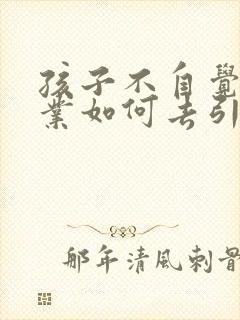 孩子不自覺
業如何去引
那年清風刺骨